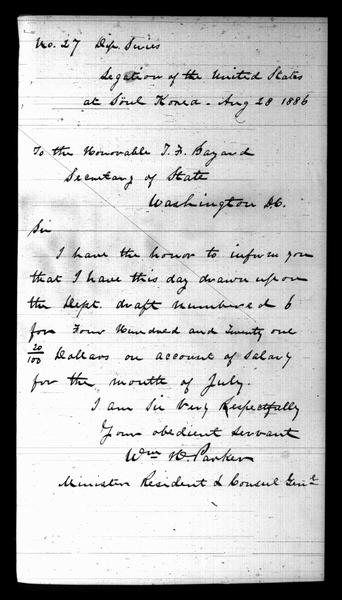 No. 27 Dip. Series
Legation of the United States
at Söul Korea - Aug 28 1886
To the Honorable T. F. Bayard
Secretary of State
Washington D.C.
Sir
I have the honor to inform you
that I have this day drawn upon
the Dept. draft numbered 6
for Four Hundred and Twenty one
20/100 Dollars on account of salary
for the month of July.
I am Sir Very Respectfully
Your obedient servant
Wm H. Parker
Minister Resident & Consul Genl